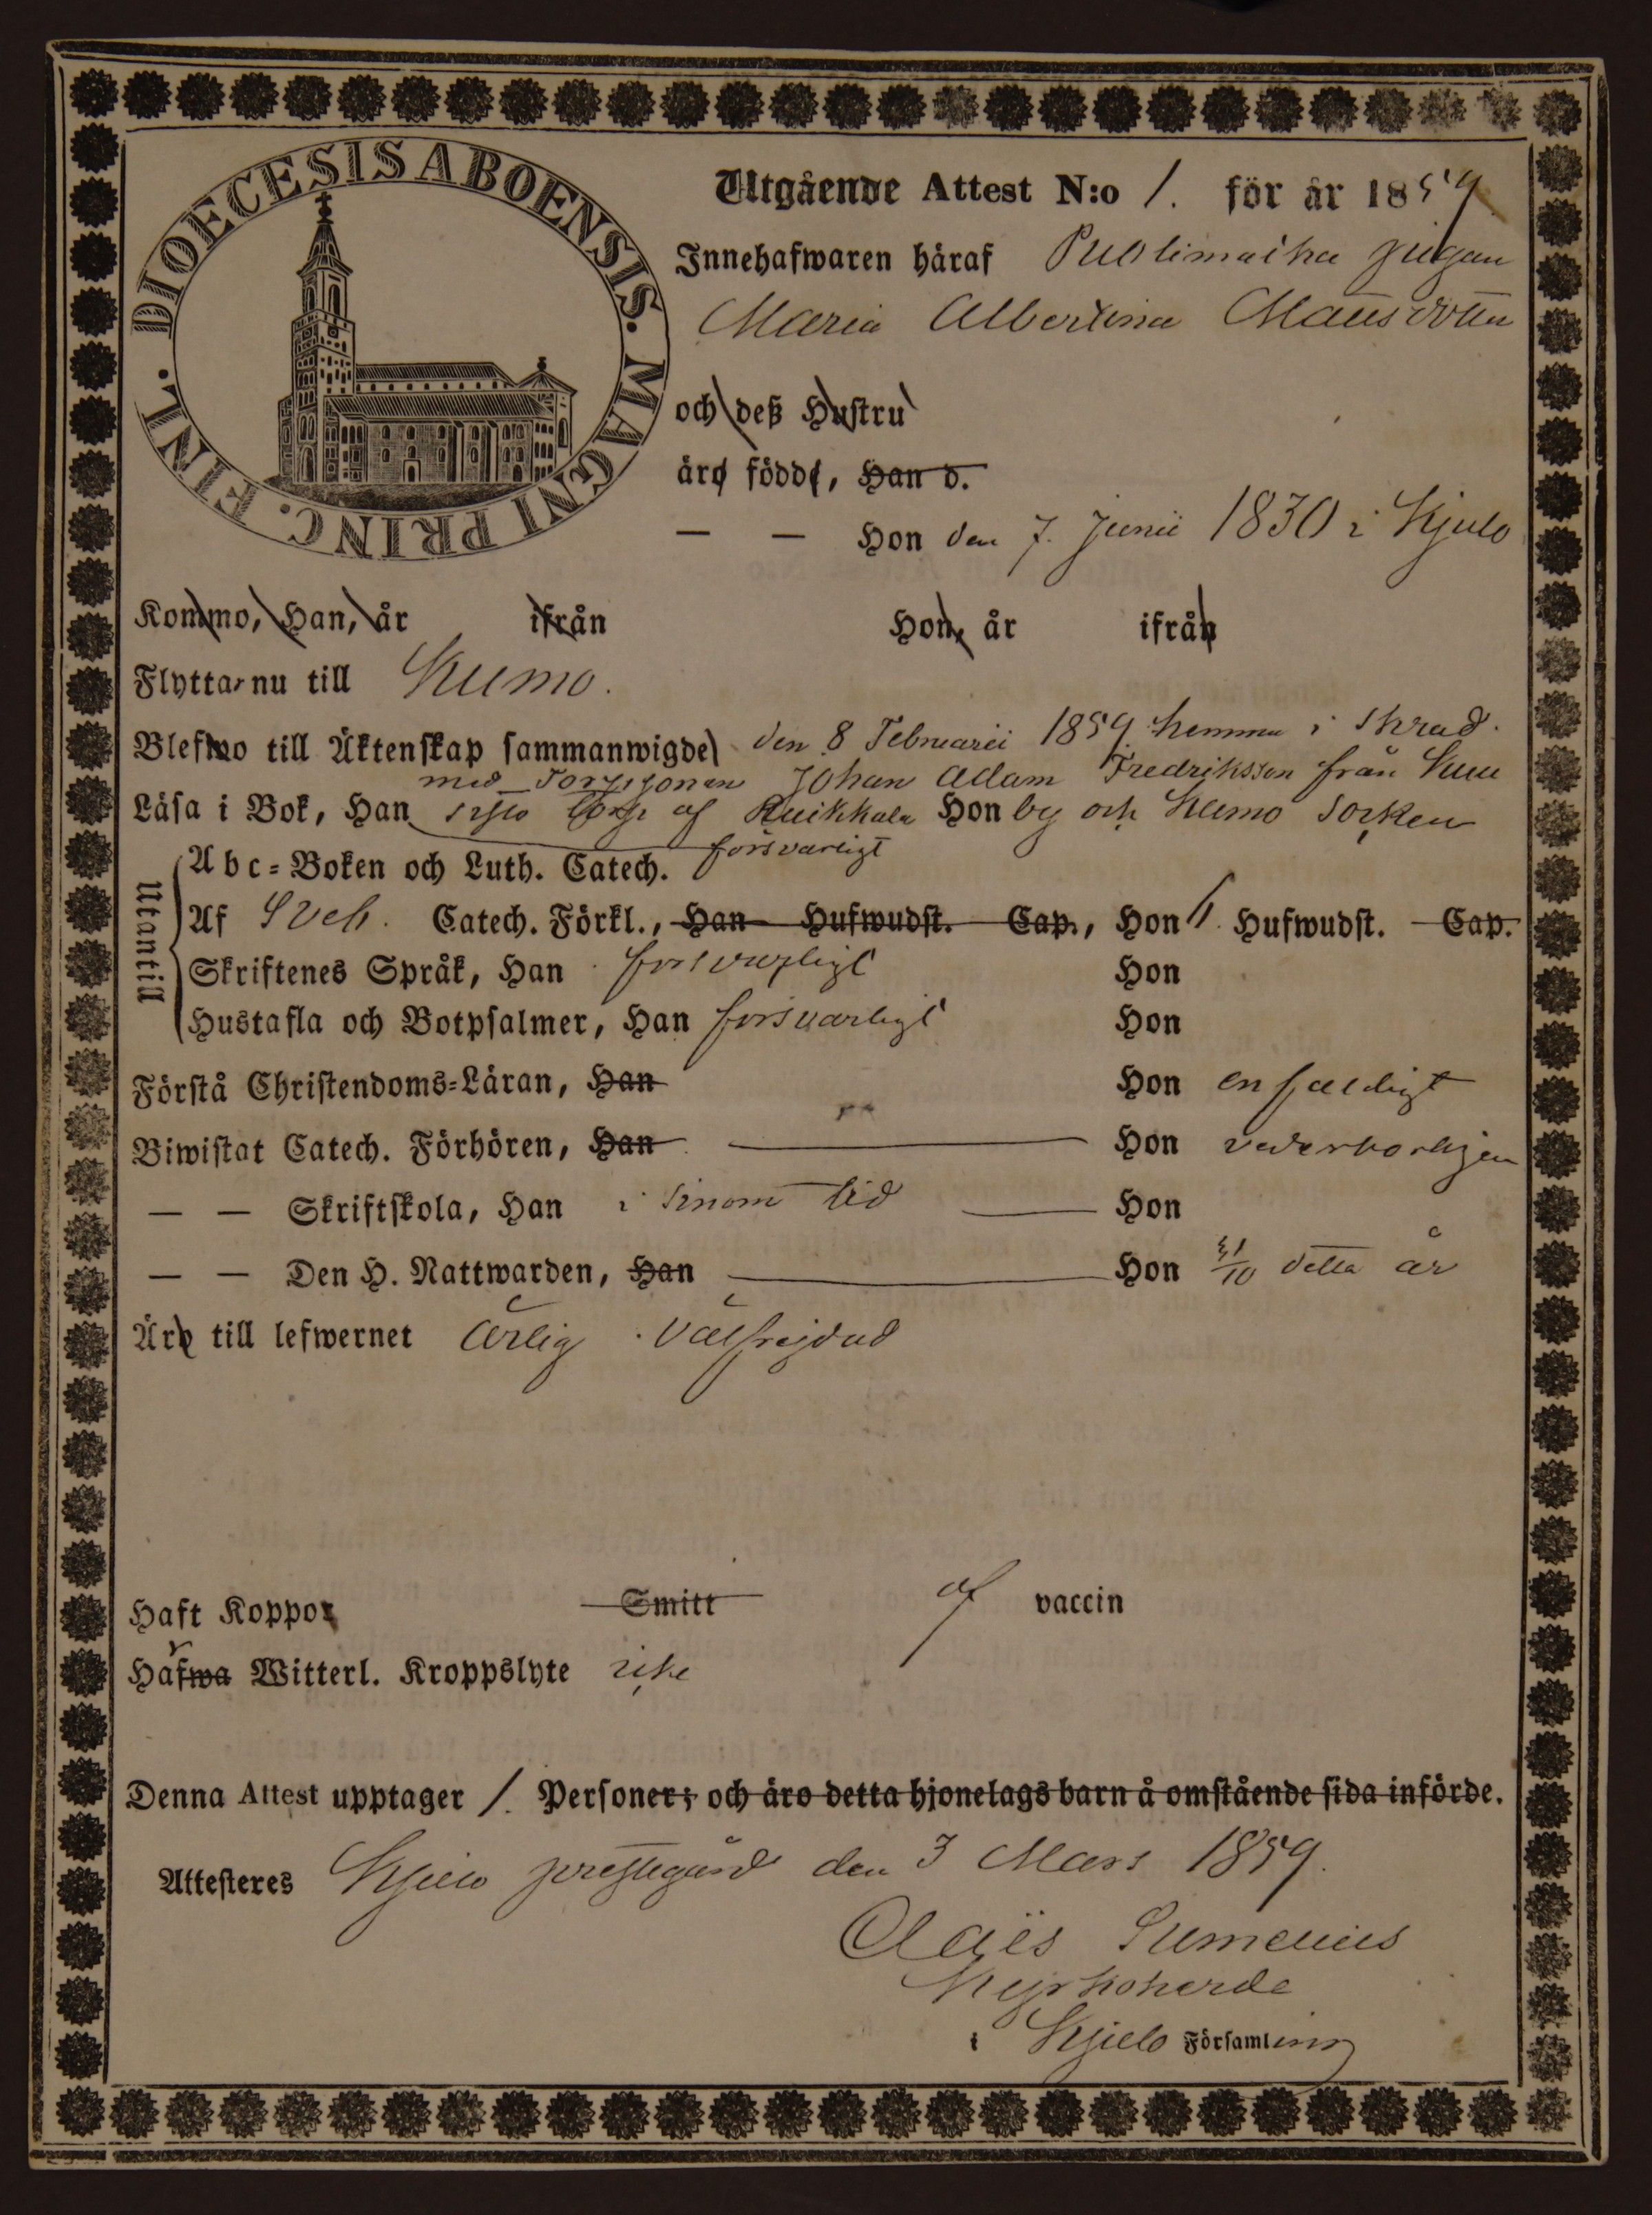 DIOECESIS ABOENSIS. MAGNI PRINC. FINL.
Utgående Attest N:o 1. för år 1859
Innehafwaren häraf Puolimatka pigan
Maria Albertina Mattsdotter
och deß Hustru
äro födde, Han d.
— — Hon den 7. Junii 1830 i Kjulo
Kommo, Han, år ifrån Hon, år ifrån
Flytta nu till Kumo.
Blefwo till Äktenskap sammanwigde den 8 Februarii 1859 hemma i
med Johan Adam Fredriksson från
Läsa i Bok, Han af Hon by och Kumo Socken
försvarligt
Utantill
Abc-Boken och Luth. Catech.
Af Sveb. Catech. Förkl., Han Hufwudst. Cap., Hon Hufwudst. Cap.
Skriftenes Språk, Han försvarligt Hon
Hustafla och Botpsalmer, Han försvarligt Hon
Förstå Christendoms-Läran, Han Hon enfaldigt
Biwistat Catech. Förhören, Han Hon vederborligen
— — Skriftskola, Han i sinom tid Hon
— — Den H. Nattwarden, Han Hon detta år
Äro till lefwernet ärlig välfrejdad
Haft Koppor Smitt af vaccin
Hafwa Witterl. Kroppslyte icke
Denna Attest upptager 1. Personer; och äro detta hjonelags barn å omstående sida införde.
Attesteres Kjulo prestegård den 3 Mars 1859.
Claës
Kyrkoherde
i Kjulo Församling